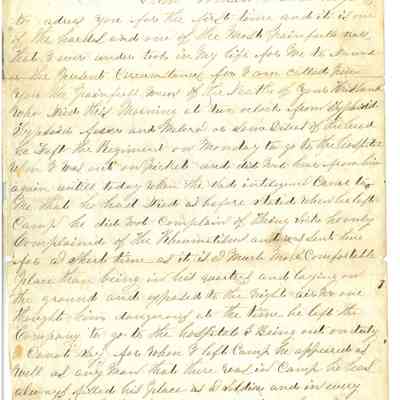 to adress you for the first time and it is one
of the hardest and one of the most painfull tasks
that I ever under took in my life for me to
in the Present Circumstances for I am called
you the painfull news of the Death of your Husband
who died this Morning at two oclock from
Typhoid fever and
he left the Regiment on Monday to go to the hospital
when I was out on picket and did not hear from him
again untill today when the sad inteligence Came to
me that he had died as before stated when he left
Camp he did not Complain of being sick he only
Complained of the Rhumatism and was sent here
for a short time as it is a much more Comfortable
place than being in his quarters and laying on
the ground and opposed to the night air no one
thought him dangerous at the time he left the
Company to go to the hospital I Being out on duty
I Cannot say for when I left Camp he appeared as
well as any man that there was in Camp he has
always filled his place as a soldier and in every